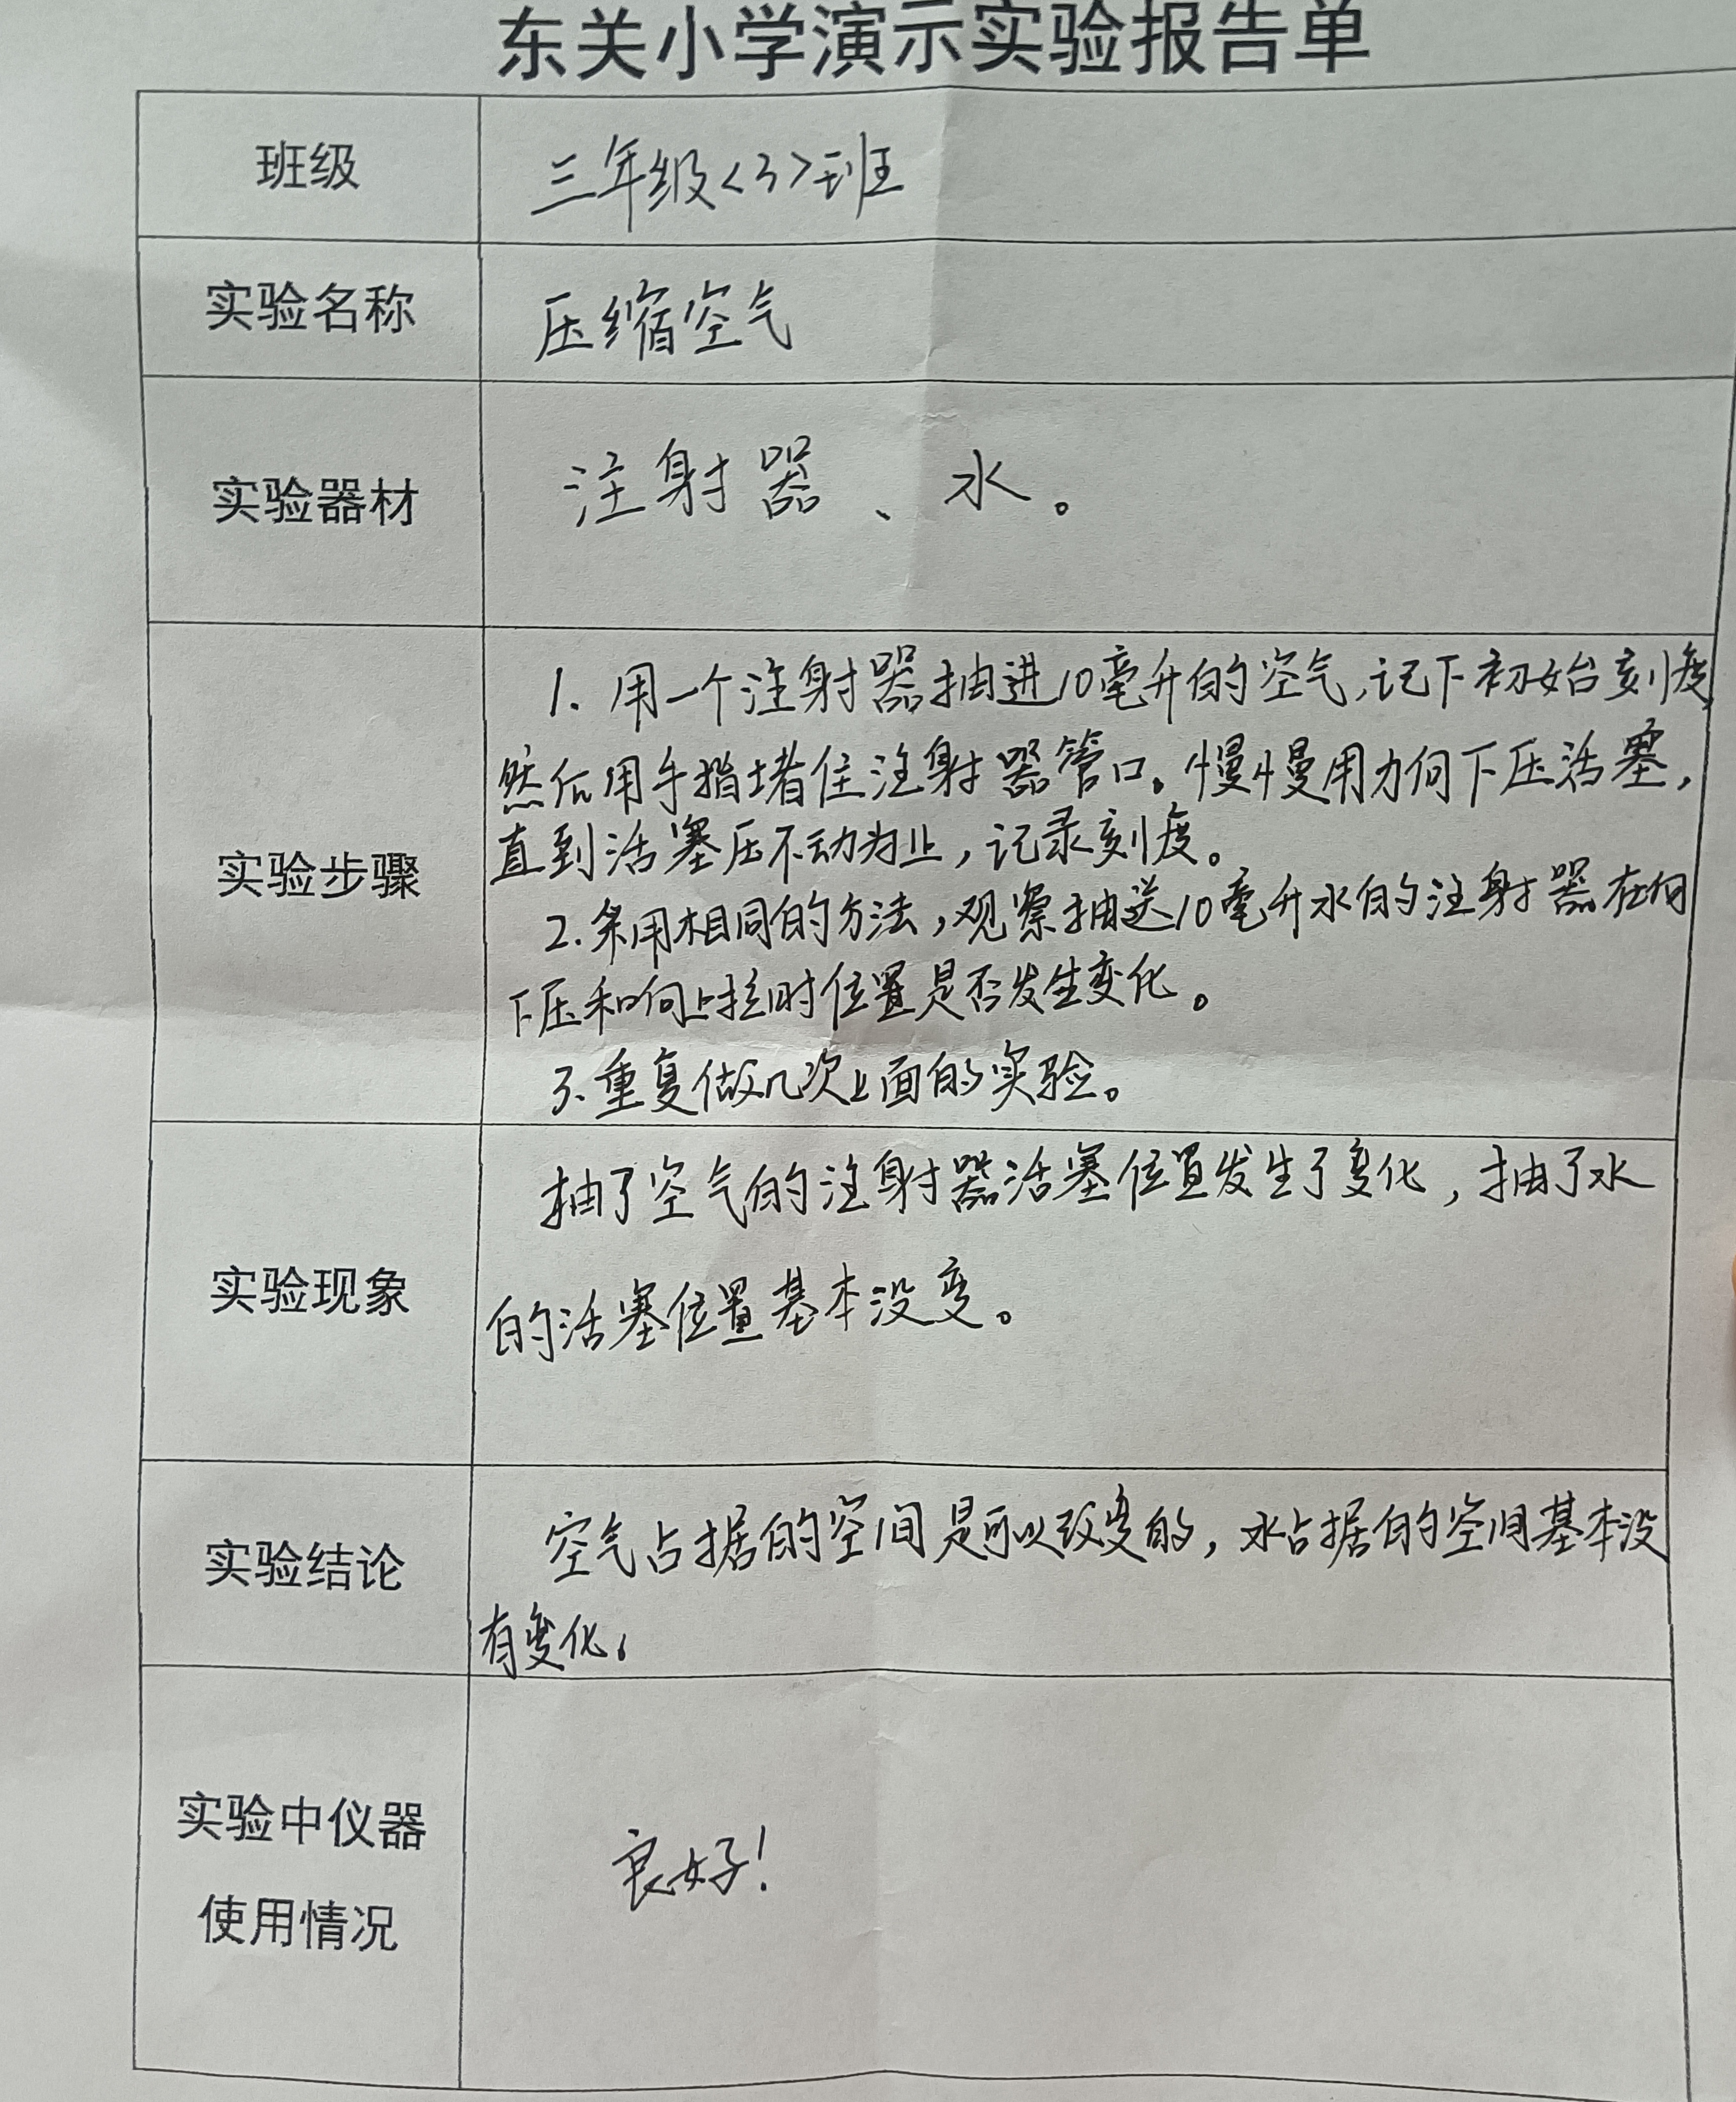 东关小学演示实验报告单
班级
三年级<3>班
实验名称
压缩空气
实验器材
注射器、水。
实验步骤
1. 用一个注射器抽进10毫升的空气,记下初始刻度
然后用手指堵住注射器管口。慢慢用力向下压活塞,
直到活塞压不动为止,记录刻度。
2.采用相同的方法,观察抽送10毫升水的注射器在向
下压和向上拉时位置是否发生变化。
3.重复做几次上面的实验。
实验现象
抽了空气的注射器活塞位置发生了变化,抽了水
的活塞位置基本没变。
实验结论
空气占据的空间是可以改变的,水占据的空间基本没
有变化。
实验中仪器
使用情况
良好!